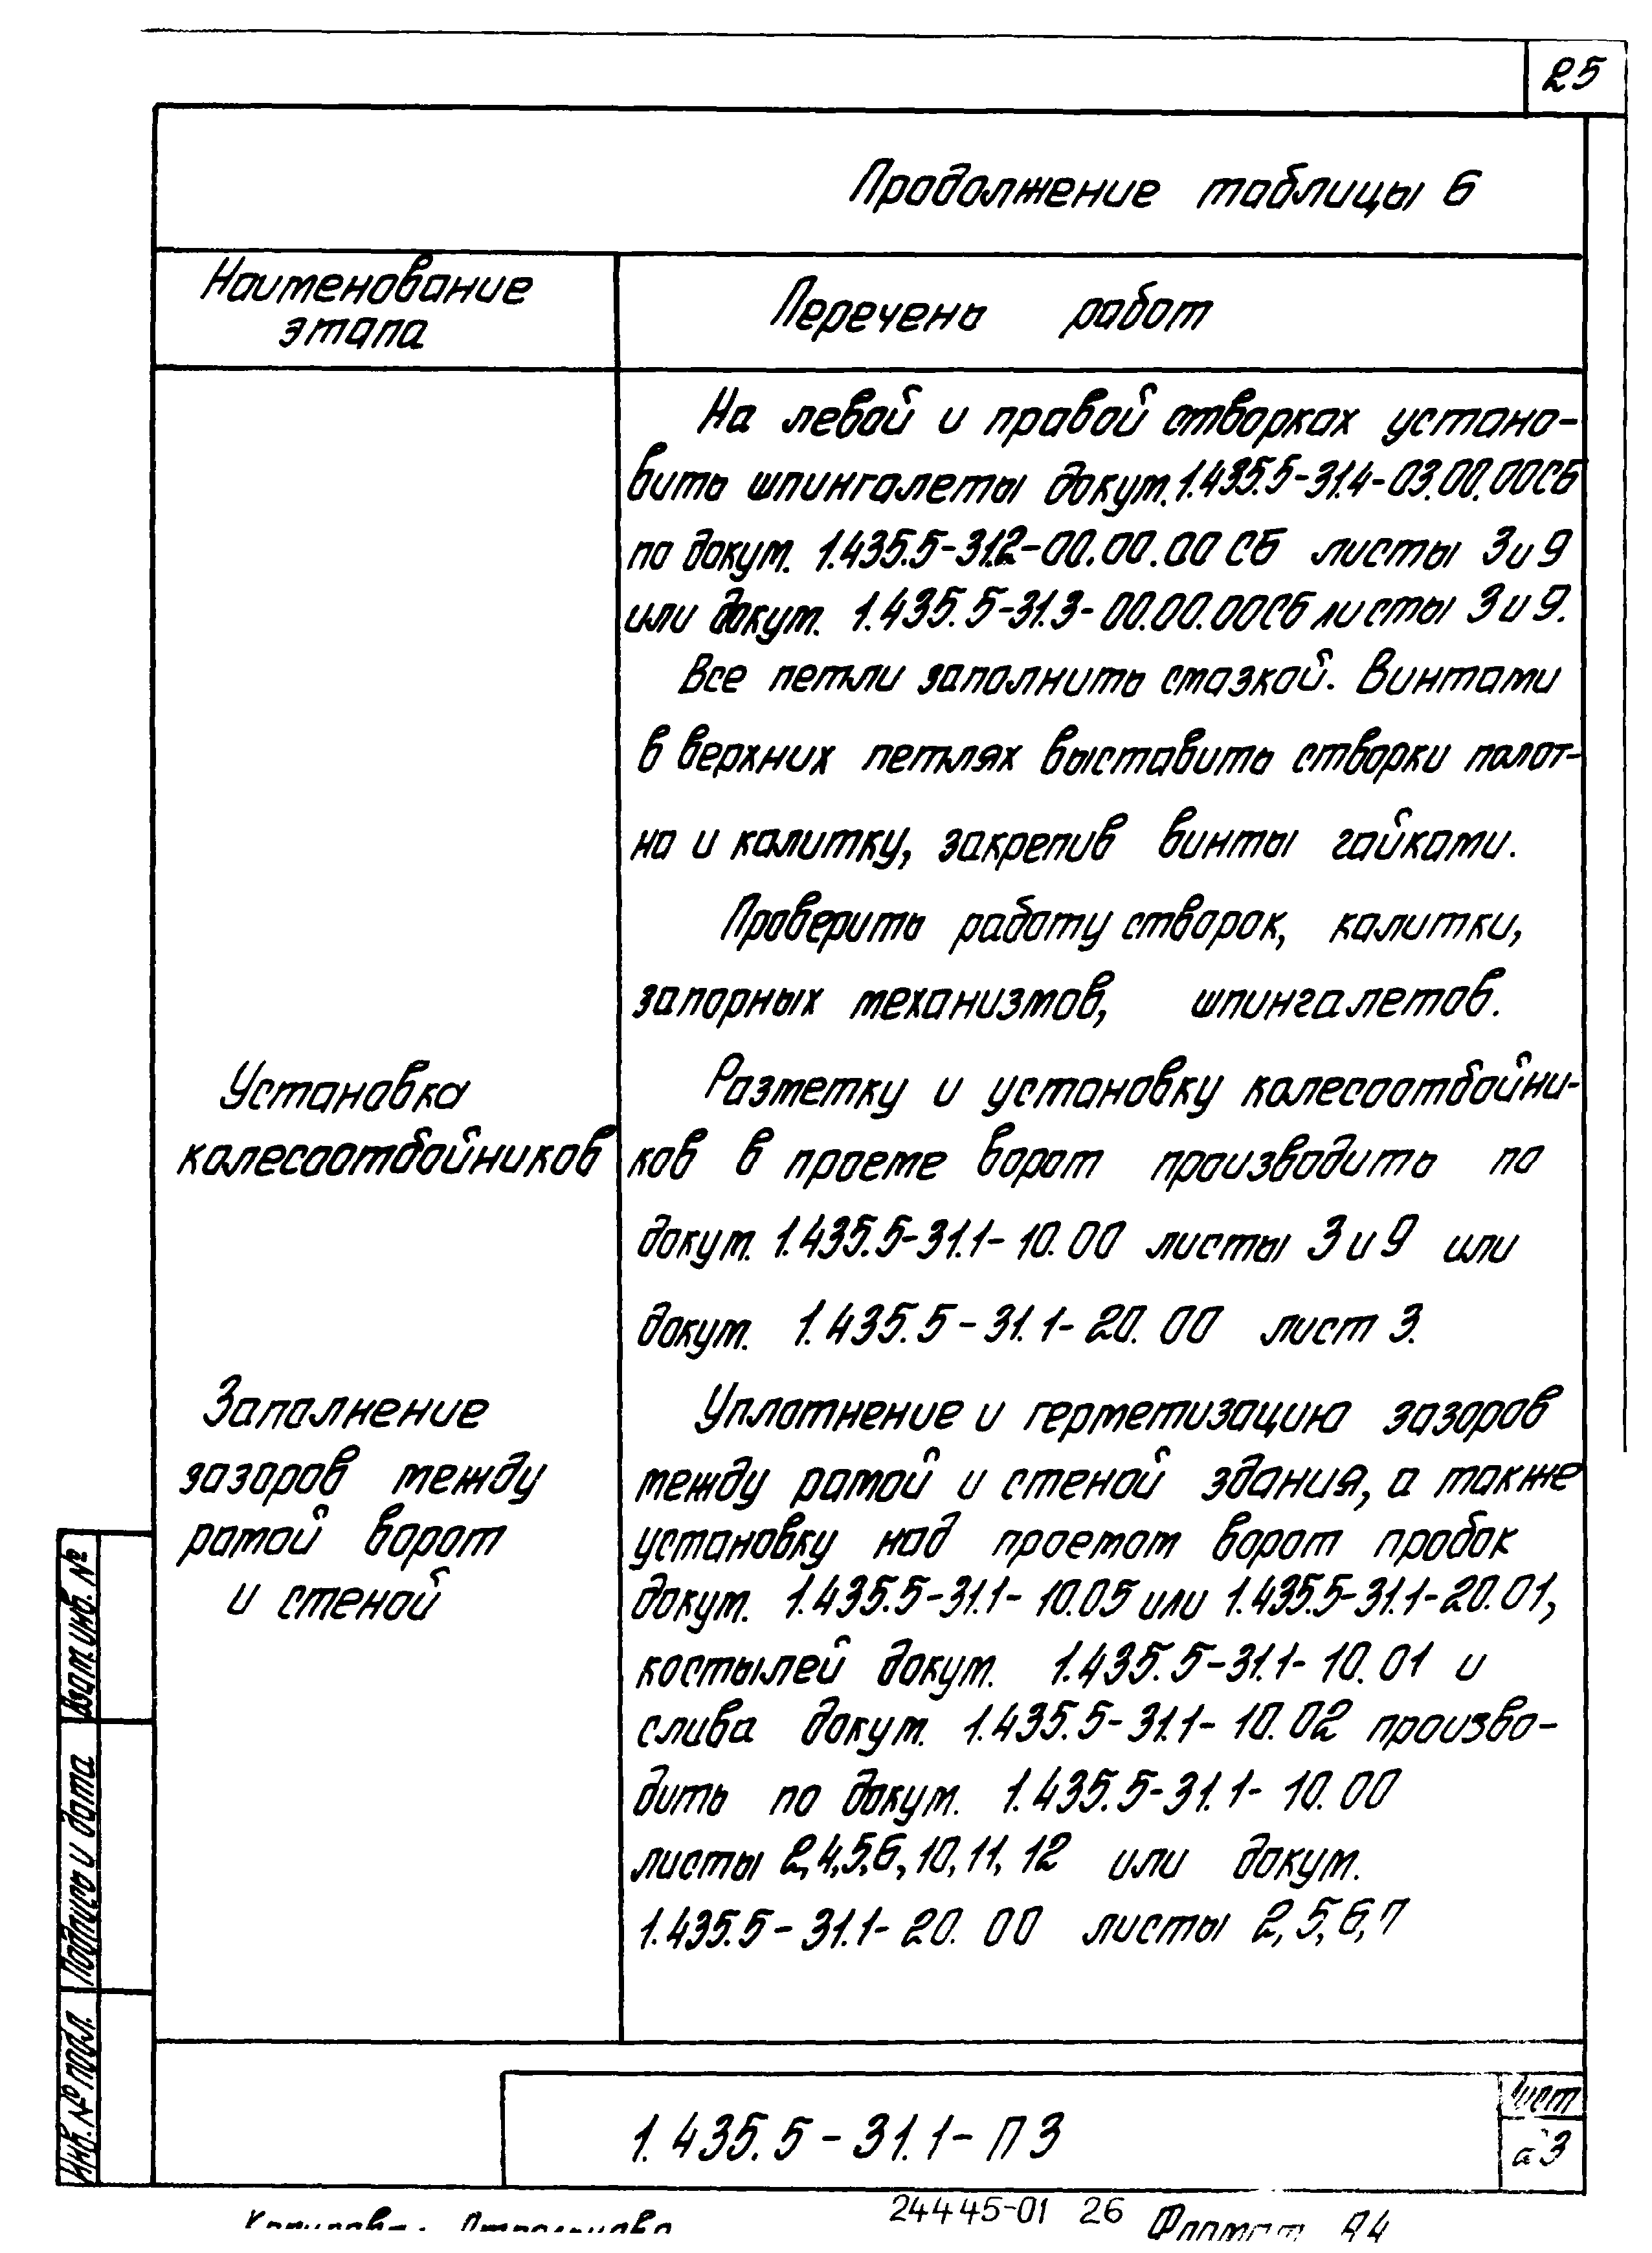 25
Продолжение таблицы 6
Наименование
этапа
Перечень работ
На левой и правой створках устано-
вить шпингалеты докум. 1.435.5-31.4-03.00.00СБ
по докум. 1.435.5-31.2-00.00.00 СБ листы 3 и 9
или докум. 1.435.5-31.3-00.00.00СБ листы 3 и 9.
Все петли заполнить смазкой. Винтами
в верхних петлях выставить створки полот-
на и калитку, закрепив винты гайками.
Проверить работу створок, калитки,
запорных механизмов, шпингалетов.
Установка
колесоотбойников
Разметку и установку колесоотбойни-
ков в проеме ворот производить по
докум. 1.435.5-31.1-10.00 листы 3 и 9 или
докум. 1.435.5-31.1-20.00 лист 3.
Заполнение
зазоров между
рамой ворот
и стеной
Уплотнение и герметизацию зазоров
между рамой и стеной здания, а также
установку над проемом ворот пробок
докум. 1.435.5-31.1-10.05 или 1.435.5-31.1-20.01,
костылей докум. 1.435.5-31.1-10.01 и
слива докум. 1.435.5-31.1-10.02 произво-
дить по докум. 1.435.5-31.1-10.00
листы 2,4,5,6,10,11,12 или докум.
1.435.5-31.1-20.00 листы 2,5,6,7
Взам. инв. №
Подпись и дата
Инв. № подл.
1.435.5-31.1-ПЗ
Лист
23
24445-01 26
Формат А4